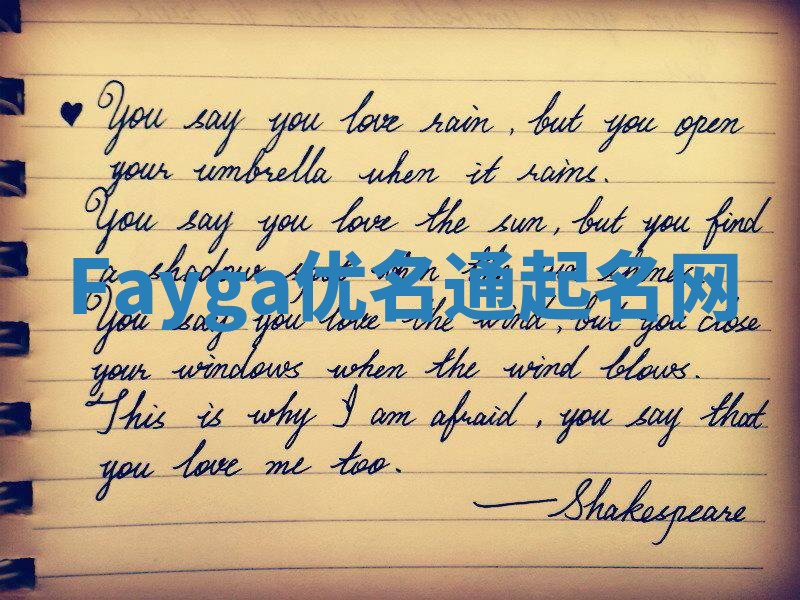 ♥ You say you love rain, but you open
your umbrella when it rains.
You say you love the sun, but you find
a shadow spot when the sun shines.
Fayga优名通起名网
You say you love the wind, but you close
your windows when the wind blows.
This is why I am afraid, you say that
you love me too.
—Shakespeare